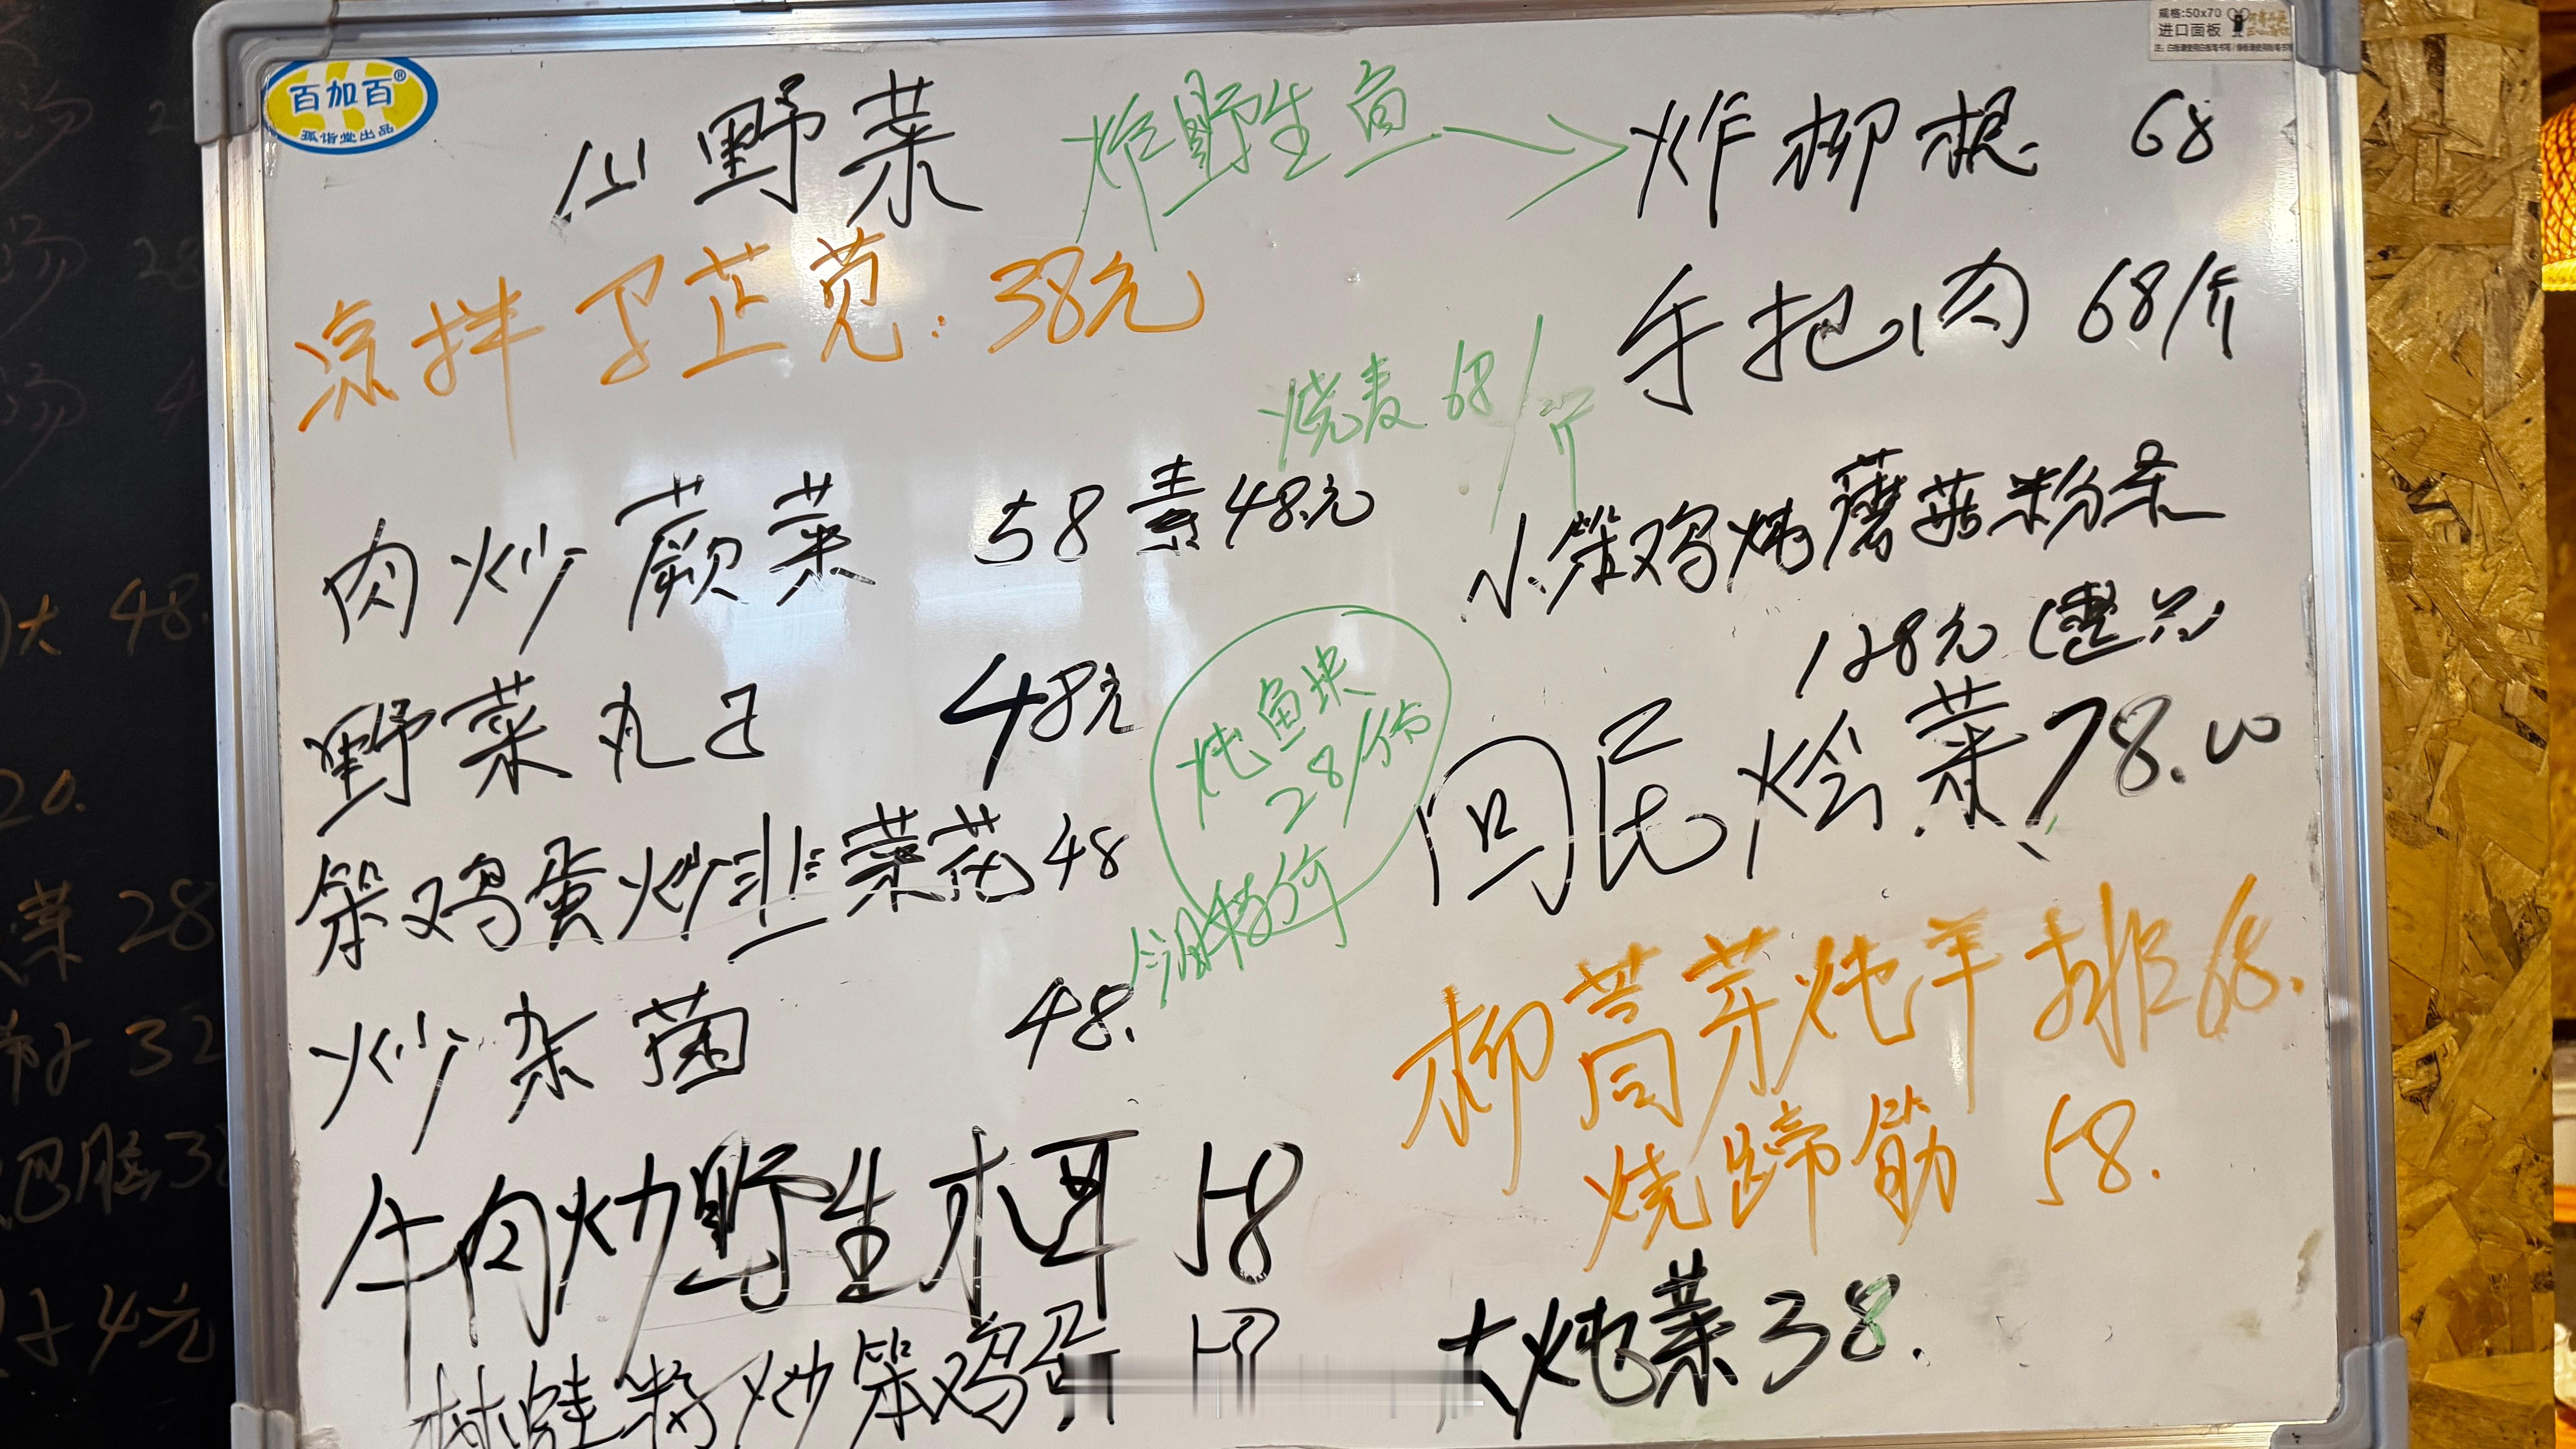 百加百®
孤诣堂出品
规格:50x70
进口面板
山野菜
炸野生鱼 → 炸柳根 68
凉拌 芷苋: 38元
手把肉 68/斤
烧麦 68/斤
肉炒蕨菜 58 素48元
小笨鸡炖蘑菇粉条
128元(整只)
野菜丸子 48元
炖鱼块
28/份
今日特价
回民烩菜 78.00
笨鸡蛋炒韭菜花 48
炒杂菌 48.
柳蒿芽炖羊排 68.
烧蹄筋 58.
牛肉炒野生木耳 58
大炖菜 38.
炒笨鸡蛋 58
大 48.
20.
菜 28
32
38
4元